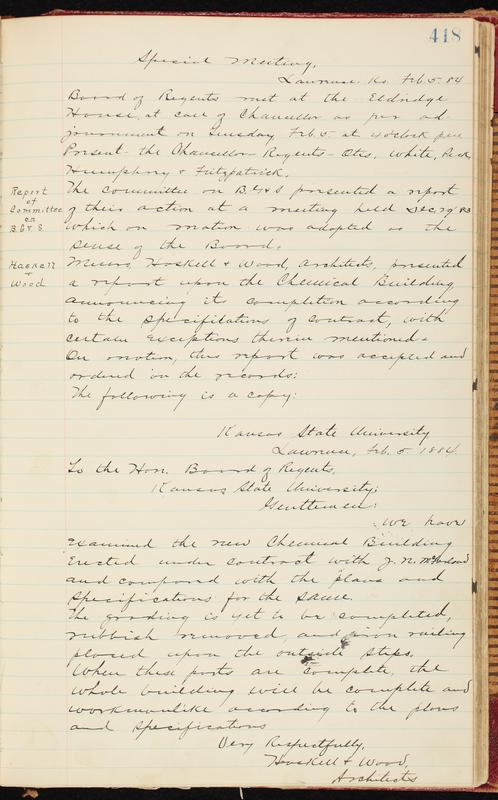 418
Special Meeting.
Lawrence Ks. Feb. 5. 84
Board of Regents met at the Eldridge
House, at call of Chancellor as per ad-
journment on Tuesday Feb. 5 at 4 o'clock p.m.
Present the Chancellor Regents - Otis, White, Peck,
Humphrey & Fitzpatrick.
Report
of
Committee
on
B. G & S.
The committee on B. G & S presented a report
of their action at a meeting held Dec. 29 83
which on motion was adopted as the
sense of the Board.
Haskell
&
Wood
Messrs Haskell & Wood, Architects, presented
a report upon the Chemical Building
announcing its completion according
to the specifications of contract, with
certain exceptions therein mentioned.
On motion, this report was accepted and
ordered on the records:
The following is a copy:
Kansas State University
Lawrence, Feb. 5. 1884.
To the Hon. Board of Regents,
Kansas State University;
Gentlemen:
We have
examined the new Chemical Building
erected under contract with J. N.
and compared with the plans and
specifications for the same.
The grading is yet to be completed,
rubbish removed, and iron railing
placed upon the outside steps.
When these parts are complete, the
whole building will be complete and
workmanlike according to the plans
and specifications
Very Respectfully,
Haskell & Wood,
Architects